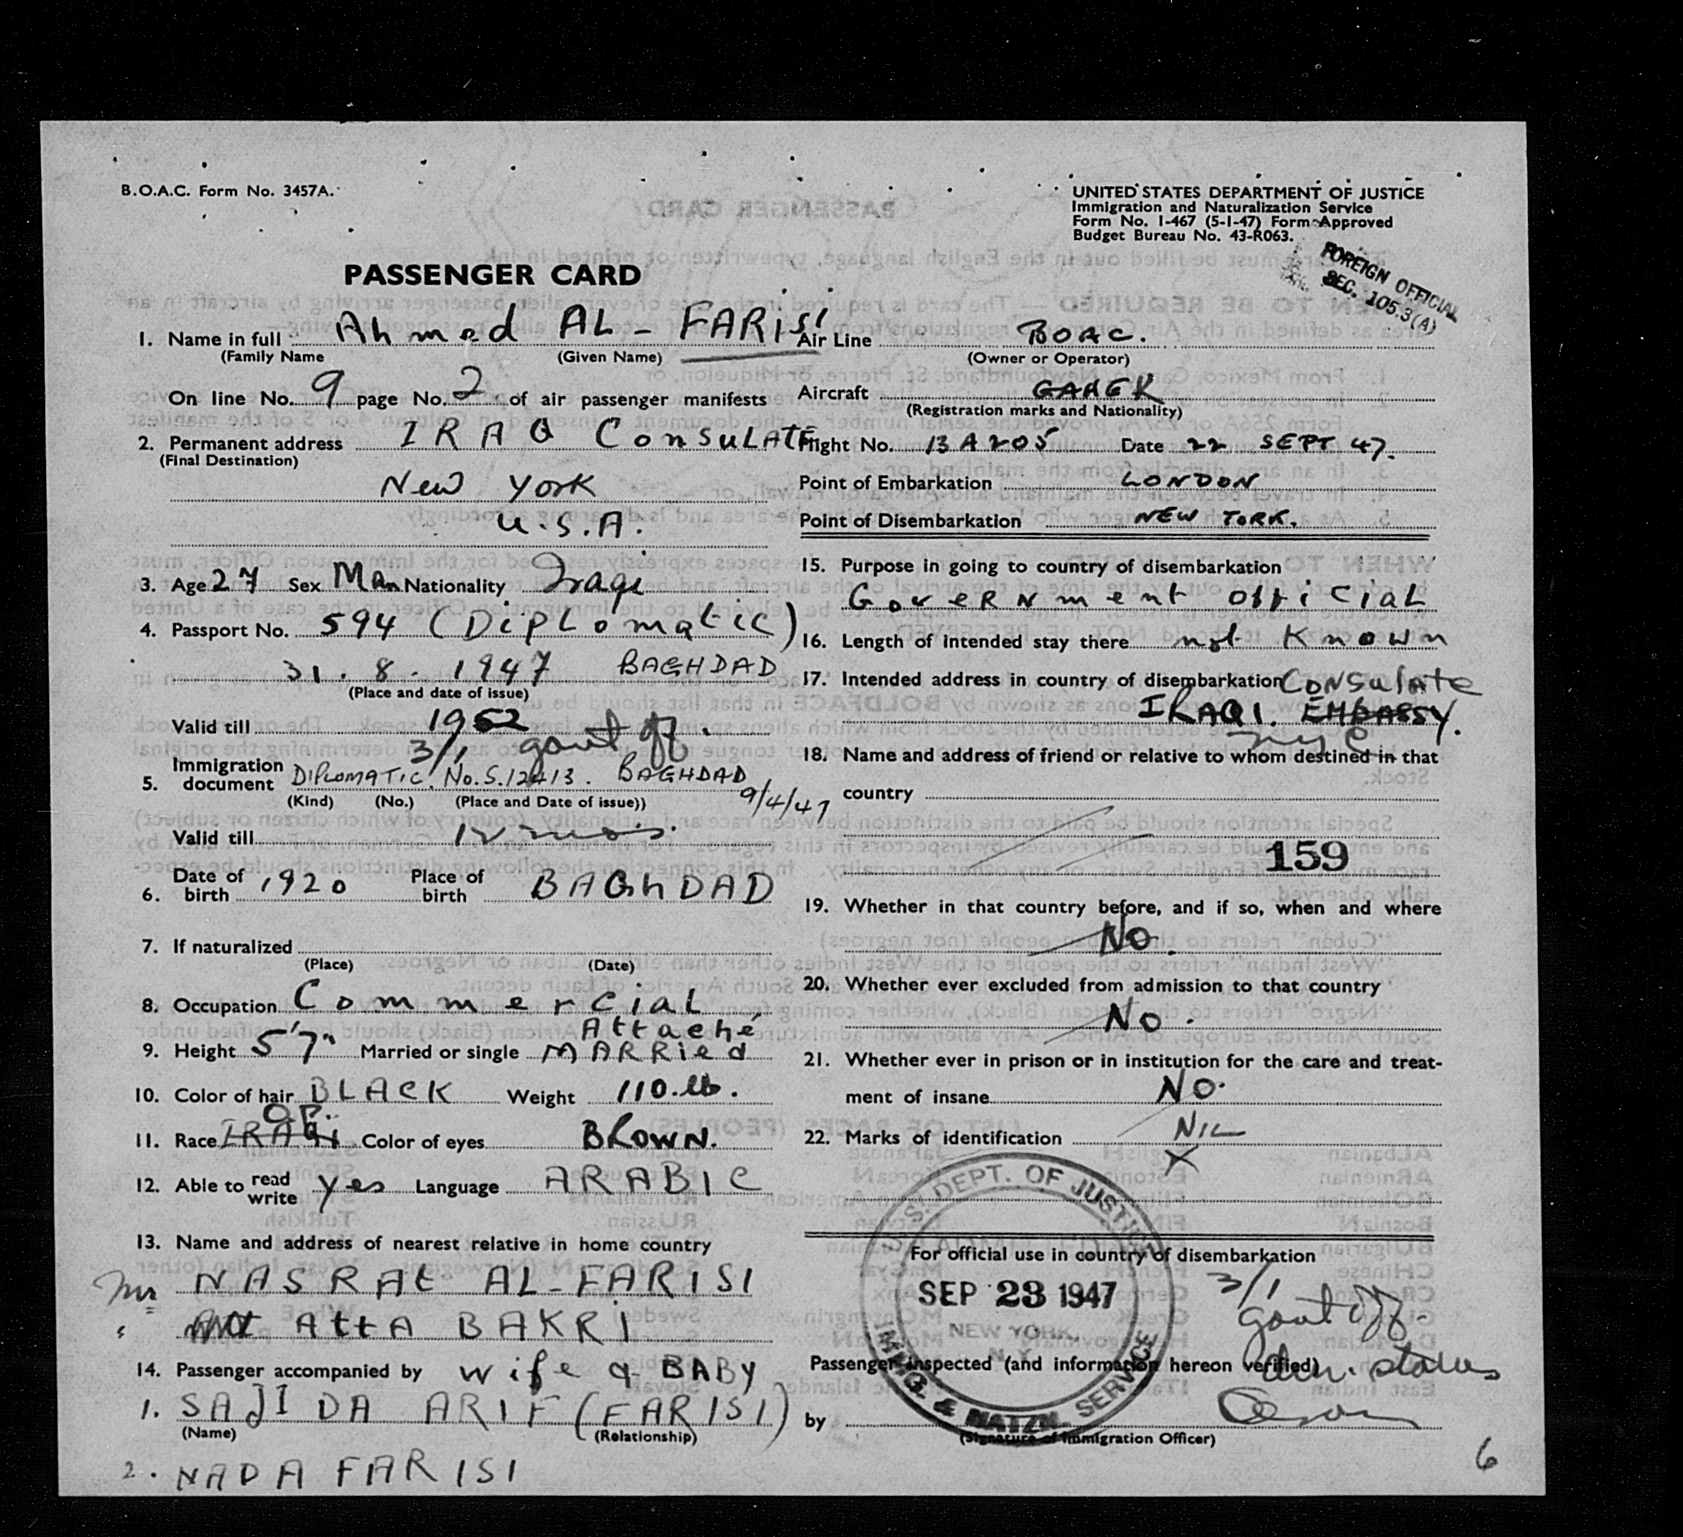 B.O.A.C. Form No. 3457A.
UNITED STATES DEPARTMENT OF JUSTICE
Immigration and Naturalization Service
Form No. I-467 (5-1-47) Form Approved
Budget Bureau No. 43-R063.
FOREIGN OFFICIAL
SEC. 105.3(A)
PASSENGER CARD
1. Name in full Ahmed AL-FARISI
(Family Name (Given Name)
On line No. 9 page No. 2 of air passenger manifests
2. Permanent address IRAQ CONSULATE
(Final Destination)
New York
U.S.A.
3. Age 27 Sex Man Nationality Iraqi
4. Passport No. 594 (Diplomatic)
31.8.1947 BAGHDAD
(Place and date of issue)
Valid till 1952
3/1 govt off.
5. Immigration document DIPLOMATIC. No. S.12413. BAGHDAD
9/4/47
(Kind) (No.) (Place and Date of issue))
Valid till 12 mos.
6. Date of birth 1920 Place of birth BAGHDAD
7. If naturalized
(Place) (Date)
8. Occupation Commercial
Attaché
9. Height 5'7" Married or single MARRIED
10. Color of hair BLACK Weight 110.lb.
11. Race IRAQI Color of eyes BROWN.
12. Able to read write yes Language ARABIC
13. Name and address of nearest relative in home country
Mr NASRAT AL-FARISI
" ATTA BAKRI
14. Passenger accompanied by wife & BABY
1. SAJIDA ARIF (FARISI)
(Name) (Relationship)
2. NADA FARISI
Air Line BOAC.
(Owner or Operator)
Aircraft GAHEK
(Registration marks and Nationality)
Flight No. BA205 Date 22 SEPT 47.
Point of Embarkation LONDON
Point of Disembarkation NEW YORK.
15. Purpose in going to country of disembarkation
Government official
16. Length of intended stay there not known
17. Intended address in country of disembarkation Consulate
IRAQI. EMBASSY.
NYC
18. Name and address of friend or relative to whom destined in that
country
159
19. Whether in that country before, and if so, when and where
NO.
20. Whether ever excluded from admission to that country
No.
21. Whether ever in prison or in institution for the care and treat-
ment of insane NO.
22. Marks of identification NIL
X
U.S. DEPT. OF JUSTICE
ADMITTED
SEP 23 1947
NEW YORK,
N.Y.
IMMIG. & NATZN. SERVICE
For official use in country of disembarkation
3/1
govt off.
Passenger inspected (and information hereon verified)
status
by
(Signature of Immigration Officer)
6